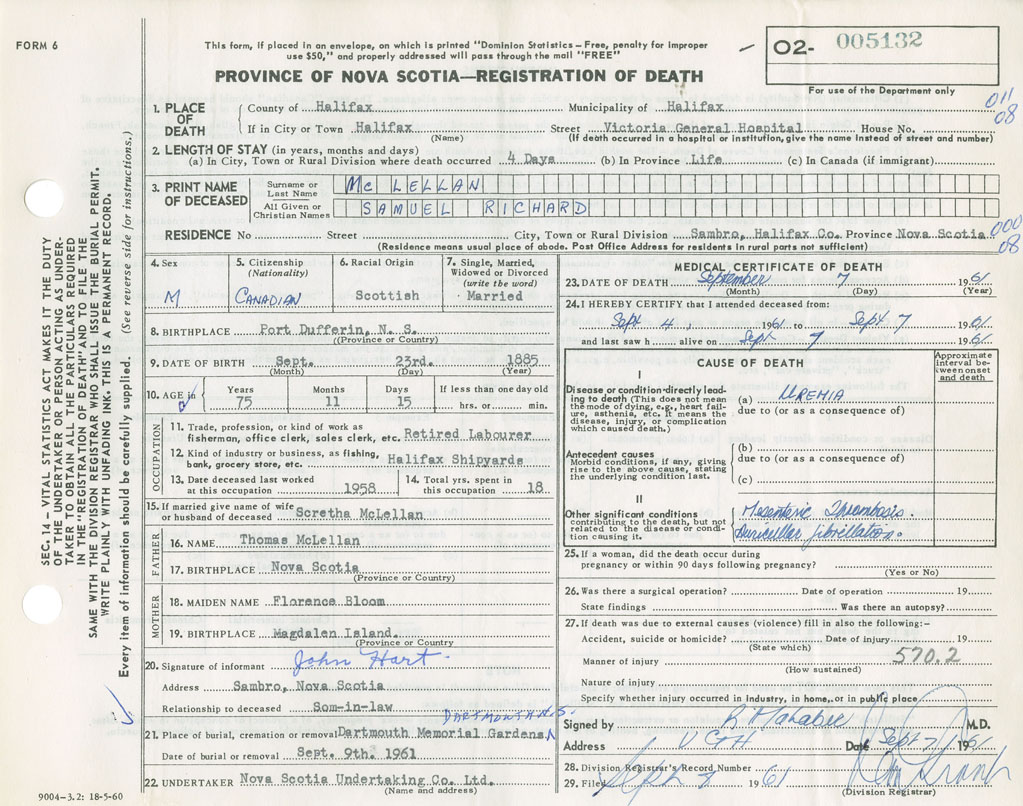 FORM 6
This form, if placed in an envelope, on which is printed "Dominion Statistics – Free, penalty for improper
use $50," and properly addressed will pass through the mail "FREE"
02- 005132
For use of the Department only
PROVINCE OF NOVA SCOTIA—REGISTRATION OF DEATH
011
08
1. PLACE OF DEATH
County of Halifax Municipality of Halifax
If in City or Town Halifax Street Victoria General Hospital House No.
(Name) (If death occurred in a hospital or institution, give the name instead of street and number)
2. LENGTH OF STAY (in years, months and days)
(a) In City, Town or Rural Division where death occurred 4 Days (b) In Province Life (c) In Canada (if immigrant)
3. PRINT NAME OF DECEASED
Surname or Last Name McLELLAN
All Given or Christian Names SAMUEL RICHARD
000
08
RESIDENCE No. Street City, Town or Rural Division Sambro, Halifax Co. Province Nova Scotia
(Residence means usual place of abode. Post Office Address for residents in rural parts not sufficient)
SEC. 14 – VITAL STATISTICS ACT MAKES IT THE DUTY
OF THE UNDERTAKER OR PERSON ACTING AS UNDER-
TAKER TO OBTAIN ALL THE PARTICULARS REQUIRED
IN THE "REGISTRATION OF DEATH" AND TO FILE THE
SAME WITH THE DIVISION REGISTRAR WHO SHALL ISSUE THE BURIAL PERMIT.
WRITE PLAINLY WITH UNFADING INK. THIS IS A PERMANENT RECORD.
Every item of information should be carefully supplied. (See reverse side for instructions.)
4. Sex M
5. Citizenship (Nationality) CANADIAN
6. Racial Origin Scottish
7. Single, Married, Widowed or Divorced (write the word) Married
8. BIRTHPLACE Port Dufferin, N. S.
(Province or Country)
9. DATE OF BIRTH Sept. 23rd. 1885
(Month) (Day) (Year)
10. AGE in Years 75 Months 11 Days 15 If less than one day old hrs. or min.
OCCUPATION
11. Trade, profession, or kind of work as
fisherman, office clerk, sales clerk, etc. Retired Labourer
12. Kind of industry or business, as fishing,
bank, grocery store, etc. Halifax Shipyards
13. Date deceased last worked at this occupation 1958
14. Total yrs. spent in this occupation 18
15. If married give name of wife
or husband of deceased Scretha McLellan
FATHER
16. NAME Thomas McLellan
17. BIRTHPLACE Nova Scotia
(Province or Country)
MOTHER
18. MAIDEN NAME Florence Bloom
19. BIRTHPLACE Magdalen Island.
(Province or Country
20. Signature of informant John Hart
Address Sambro, Nova Scotia
Relationship to deceased Som-in-law
DARTMOUTH N.S.
21. Place of burial, cremation or removal Dartmouth Memorial Gardens
Date of burial or removal Sept. 9th. 1961
22. UNDERTAKER Nova Scotia Undertaking Co. Ltd.
(Name and address)
9004-3.2: 18-5-60
MEDICAL CERTIFICATE OF DEATH
23. DATE OF DEATH September 7 1961
(Month) (Day) (Year)
24. I HEREBY CERTIFY that I attended deceased from:
Sept 4, 1961 to Sept 7 1961
and last saw h alive on Sept 7 1961
CAUSE OF DEATH
Approximate interval between onset and death
I
Disease or condition directly lead-
ing to death (This does not mean
the mode of dying, e.g., heart fail-
ure, asthenia, etc. It means the
disease, injury, or complication
which caused death.)
(a) UREMIA
due to (or as a consequence of)
Antecedent causes
Morbid conditions, if any, giving
rise to the above cause, stating
the underlying condition last.
(b)
due to (or as a consequence of)
(c)
II
Other significant conditions
contributing to the death, but not
related to the disease or condi-
tion causing it.
Mesenteric Thrombosis.
Auricular fibrillation.
25. If a woman, did the death occur during
pregnancy or within 90 days following pregnancy?
(Yes or No)
26. Was there a surgical operation? Date of operation 19
State findings Was there an autopsy?
27. If death was due to external causes (violence) fill in also the following:–
Accident, suicide or homicide? Date of injury 19
(State which)
Manner of injury 570.2
(How sustained)
Nature of injury
Specify whether injury occurred in industry, in home, or in public place
Signed by M.D.
Address VGH Date Sept 7 1961
28. Division Registrar's Record Number
29. Filed Sept 7 1961
(Division Registrar)